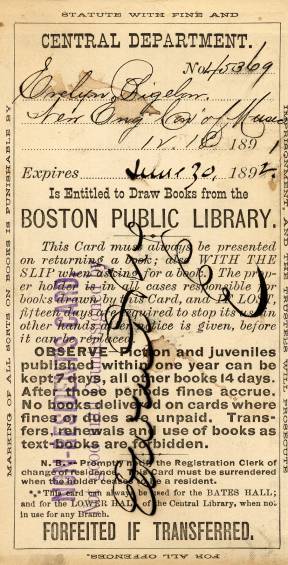 STATUTE WITH FINE AND
CENTRAL DEPARTMENT.
No. 45369
Evelyn Bigelow
New Eng. Con' of Music
12. 18 1891
Expires June 30, 1892.
Is Entitled to Draw Books from the
BOSTON PUBLIC LIBRARY.
This Card must always be presented
on returning a book; also WITH THE
SLIP when asking for a book. The prop-
er holder is in all cases responsible for
books drawn by this Card, and if LOST,
fifteen days are required to stop its use in
other hands after notice is given, before
it can be replaced.
OBSERVE—Fiction and juveniles
published within one year can be
kept 7 days, all other books 14 days.
After those periods fines accrue.
No books delivered on cards where
fines or dues are unpaid. Trans-
fers, renewals and use of books as
text-books are forbidden.
N. B.—Promptly notify the Registration Clerk of
change of residence. This card must be surrendered
when the holder ceases to be a resident.
*** This card can always be used for the BATES HALL;
and for the LOWER HALL of the Central Library, when not
in use for any Branch.
FORFEITED IF TRANSFERRED.
FOR ALL OFFENCES.
MARKING OF ALL SORTS ON BOOKS IS PUNISHABLE BY
IMPRISONMENT AND THE TRUSTEES WILL PROSECUTE